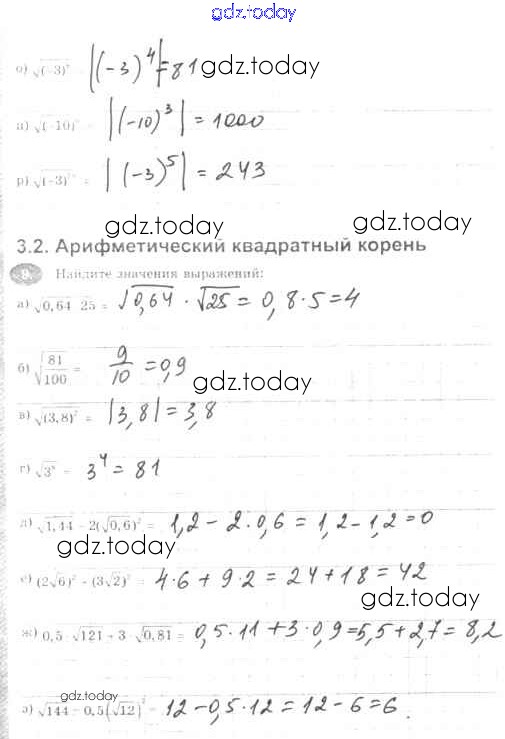 gdz.today
о) √(−3)⁸ = |(−3)⁴| = 81 gdz.today
п) √(−10)⁶ = |(−10)³| = 1000
р) √(−3)¹⁰ = |(−3)⁵| = 243
gdz.today gdz.today
3.2. Арифметический квадратный корень
9. Найдите значения выражений:
а) √0,64 · 25 = √0,64 · √25 = 0,8 · 5 = 4
б) √81/100 = 9/10 = 0,9
gdz.today
в) √(3,8)² = |3,8| = 3,8
г) √3⁸ = 3⁴ = 81
д) √1,44 − 2(√0,6)² = 1,2 − 2 · 0,6 = 1,2 − 1,2 = 0
gdz.today
е) (2√6)² + (3√2)² = 4 · 6 + 9 · 2 = 24 + 18 = 42
gdz.today
ж) 0,5 · √121 + 3 · √0,81 = 0,5 · 11 + 3 · 0,9 = 5,5 + 2,7 = 8,2
gdz.today
з) √144 − 0,5(√12)² = 12 − 0,5 · 12 = 12 − 6 = 6.